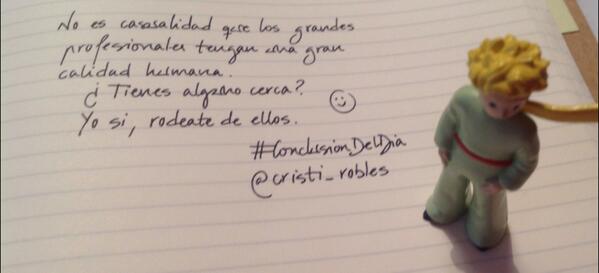 No es casualidad que los grandes
profesionales tengan una gran
calidad humana.
¿Tienes alguno cerca?
Yo si, rodeate de ellos.
#ConclusionDelDia
@cristi_robles